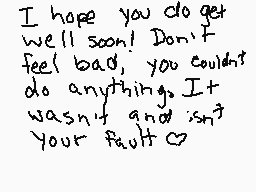 I hope you do get
well soon! Don't
feel bad, you couldn't
do anything. It
wasn't and isn't
your fault ♡